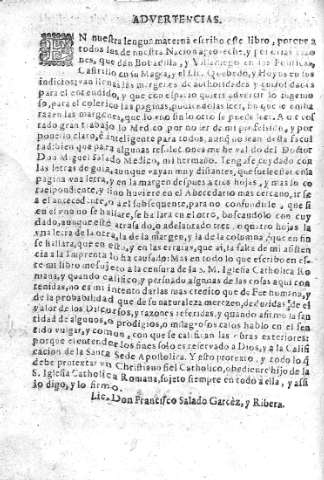 ADVERTENCIAS.
EN nuestra lengua materna escribo este libro, porque a
todos los de nuestra Nacion aproveche, y por otras razo-
nes, que dan Bobadilla, y Villadiego en sus Politicas,
Castrillo en su Magia, y el Lic. Quebedo, y Hoyos en los
indicios; van llenas las margenes de authoridades
para el entendido, y que con espacio quiere advertir lo ingenio
so, para el colerico las paginas, puede leerlas, sin que le emba
razen las margenes, que lo vno sin lo otro se puede leer. A co
tado gran trabajo lo Medico por no ser de mi profession, y por
ponerlo claro, è inteligible para todos, aunque no sean de la facul
tad: bien que para algunas resoluciones me he valido del Doctor
Don Miguel Salado Medico, mi hermano. Tengase cuydado con
las letras de guia, aunque vayan muy distantes, que suele estar en la
pagina vna letra, y en la margen despues a tres hojas, y mas su co
rrespondiente, y sino huviere en el Abecedario mas cercano, ir se
a el antecedente, o al subsequente, para no confundirse, que si
en el vno no se hallare, se hallara en el otro, buscandolo con cuy
dado, aunque estè atrasado, o adelantado tres, o quatro hojas la
vna letra de la otra, la de la margen, y la de la columna, que en fin
se hallarà, que en esto, y en las erratas, que ai, la falta de mi assisten
cia a la Imprenta lo ha causado: Mas en todo lo que escribo en es-
te mi libro me sujeto a la censura de la S. M. Iglesia Catholica Ro
mana, y quando califico, y persuado algunas de las cosas aqui con
tenidas, no es mi intento darlas mas credito que de Fee humana, y
de la probabilidad que de su naturaleza merezen, deducidas de el
valor de los Discursos, y razones referidas, y quando afirmo la san
tidad de algunos, o prodigios, o milagrosos casos hablo en el sen
tido vulgar, y comun, con que se califican las obras exteriores:
porque el entender los fines solo es reservado a Dios, a la Califi
cacion de la Santa Sede Apostolica. Y esto protexto, y todo lo q̃
debe protextar vn Christiano fiel Catholico, obediente hijo de la
S. Iglesia Catholica Romana, sujeto siempre en todo à ella, y assi
lo digo, y lo firmo.
Lic. Don Francisco Salado Garcèz, y Ribera.